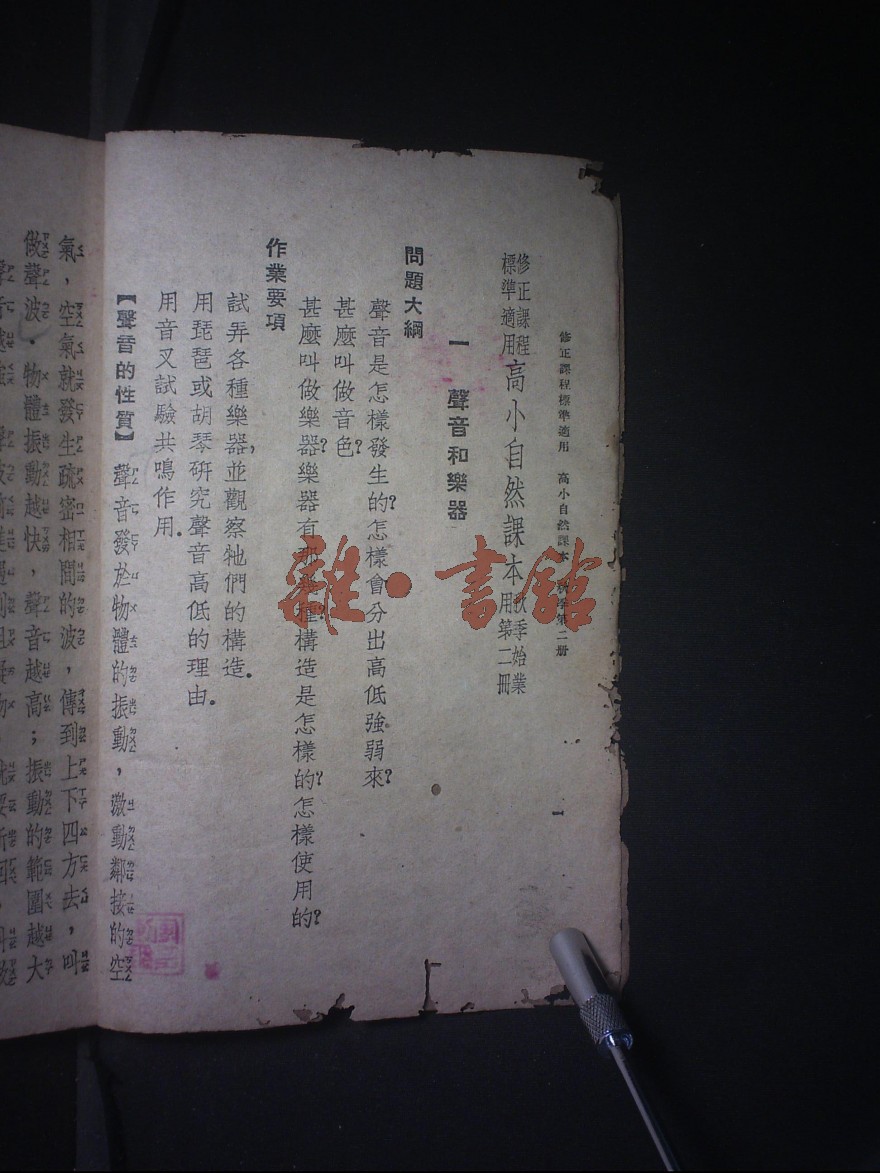 修正課程標準適用　高小自然課本　秋季第二册
一
修正課程標準適用高小自然課本秋季始業用第二冊
一　聲音和樂器
問題大綱
聲音是怎樣發生的？怎樣會分出高低強弱來？
甚麼叫做音色？
甚麼叫做樂器？樂器有那幾種？構造是怎樣的？怎樣使用的？
作業要項
試弄各種樂器，並觀察牠們的構造．
用琵琶或胡琴研究聲音高低的理由．
用音叉試驗共鳴作用．
【聲音的性質】　聲音發於物體的振動，激動鄰接的空
氣，空氣就發生疏密相間的波，傳到上下四方去，叫
做聲波．物體振動越快，聲音越高；振動的範圍越大
雜·書館